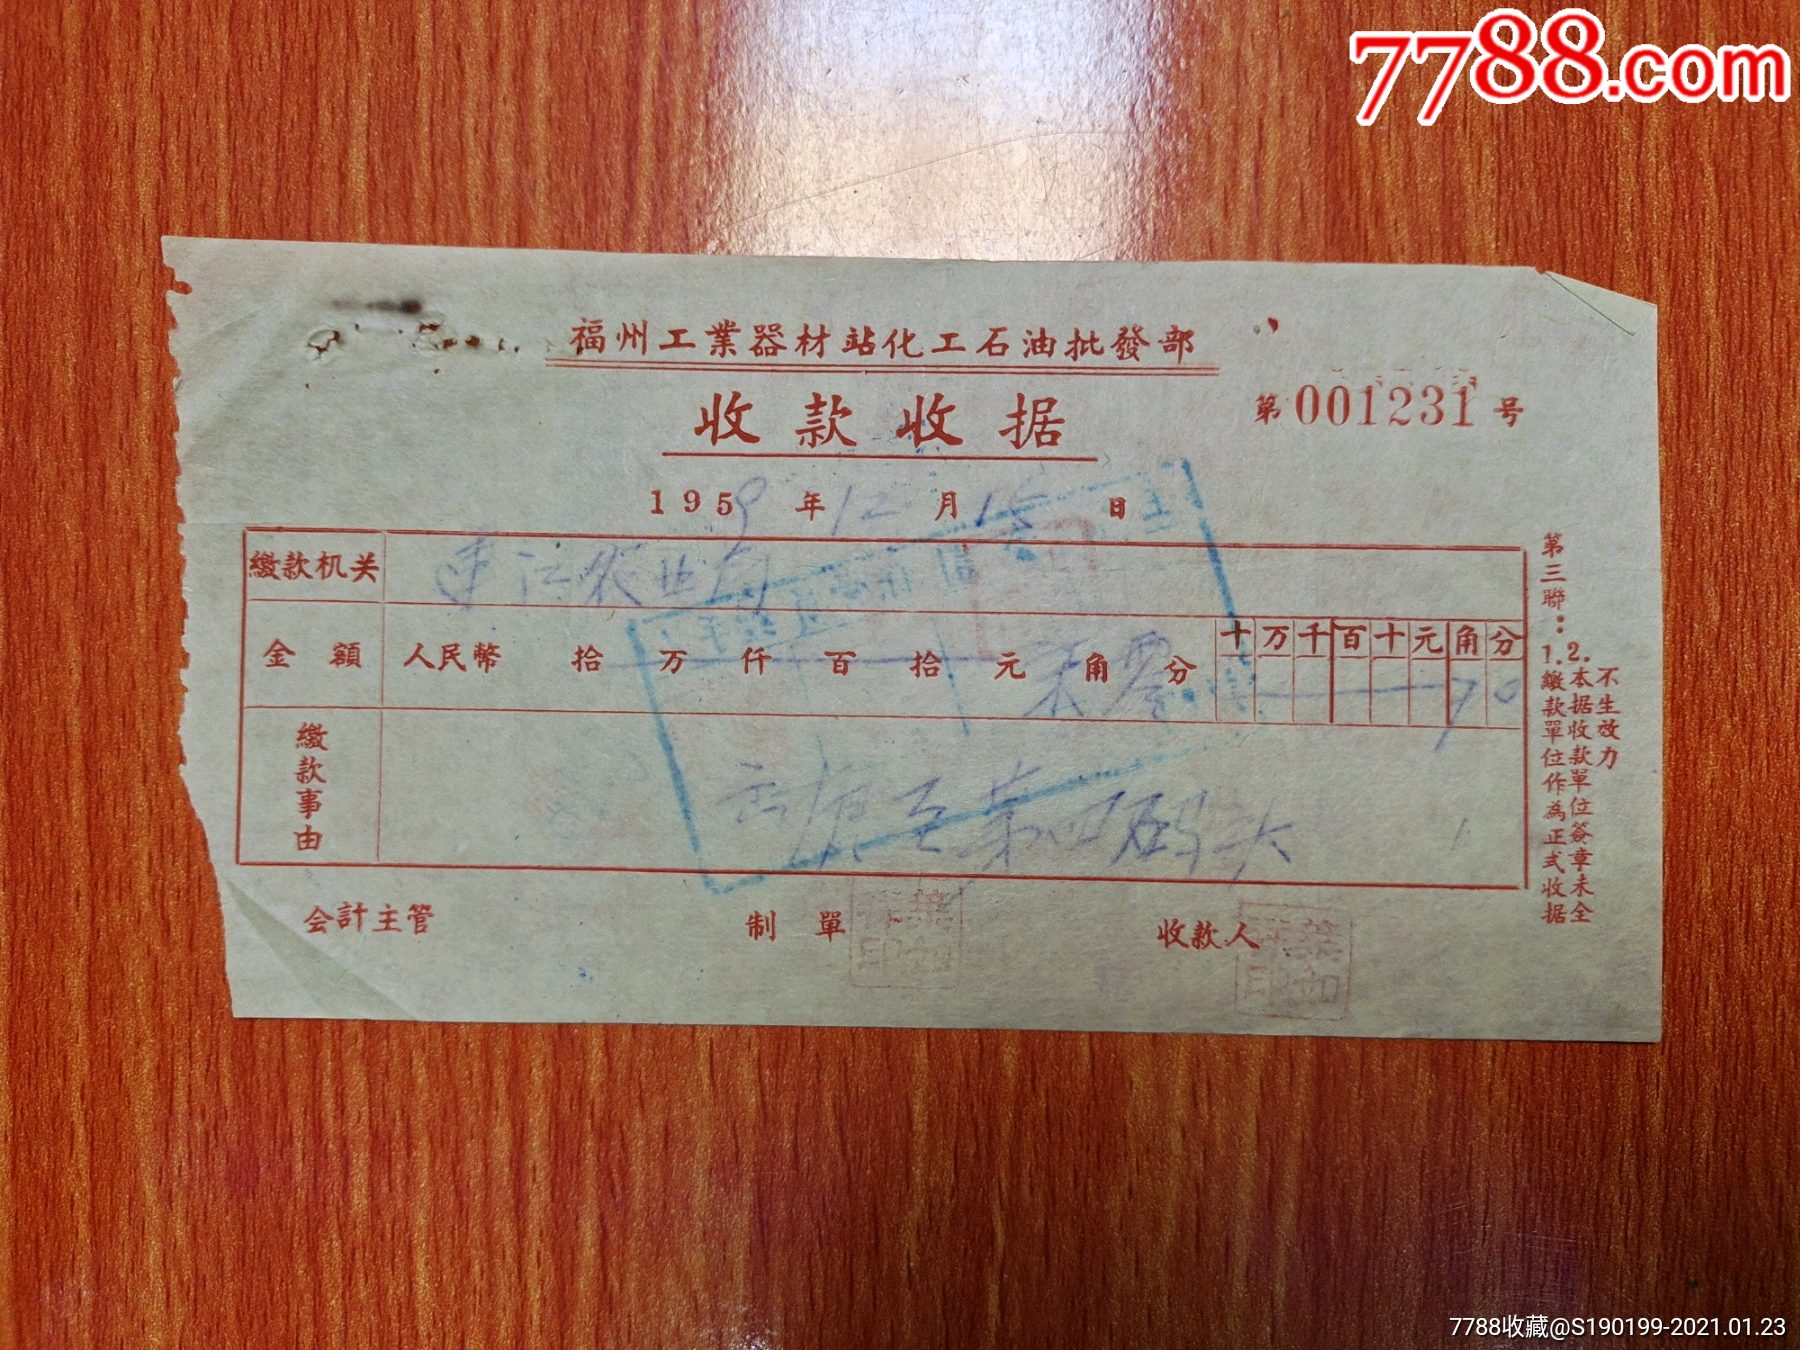 7788.com
福州工業器材站化工石油批發部
收款收据
第001231号
1959年12月15日
繳款机关 連江农业局
金額 人民幣 拾 万 仟 百 拾 元 角 分 十万千百十元角分
柒 零 70
繳款事由 至第四码头
会計主管 制單 收款人
第三聯:
1.繳款單位作為正式收据
2.本据收款單位簽章未全
不生效力
7788收藏@S190199-2021.01.23